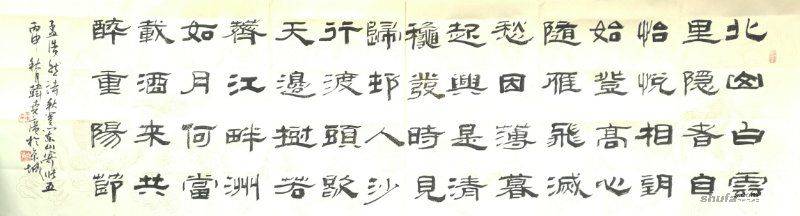 北山白雲
里隐者自
怡悦相朢
始登高心
隨雁飛滅
愁因薄暮
起興是清
龝發時見
歸邨人沙
行渡頭歇
天邊樹若
薺江畔洲
如月何當
載酒來共
醉重陽節
孟浩然詩秋登蘭山寄張五
丙申秋月韓於京城